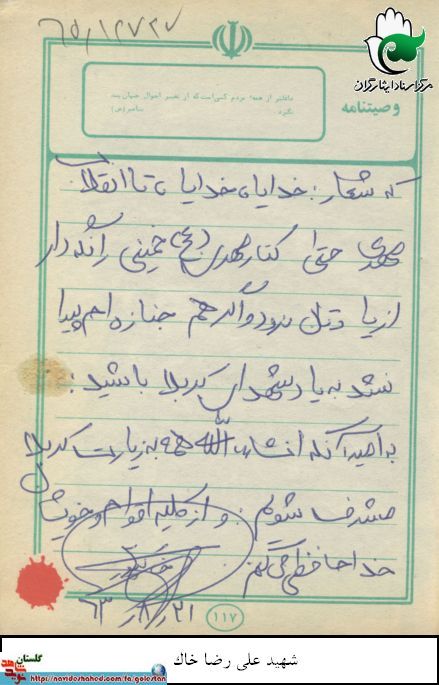 ۶۵/۱۲/۲۷
مرکز اسناد ایثارگران
وصیتنامه
غافلترین از همه مردم کسی است که از تغییر احوال جهان پند
نگیرد
که شعار: خدایا، خدایا، تا انقلاب
مهدی حتی کنار مهدی (عج) خمینی را نگه دار
از یاد نرود و اگر هم جنازه ام پیدا
نشد به یاد شهدای کربلا باشید:
به امید آنکه انشاءالله همه به زیارت کربلا
مشرف شویم. و از کلیه اقوام و خویشان
خداحافظی می‌کنم
۶۳/۸/۲۱
۱۱۷
شهید علی رضا خاک
گلستان
https://navideshahed.com/fa/golestan